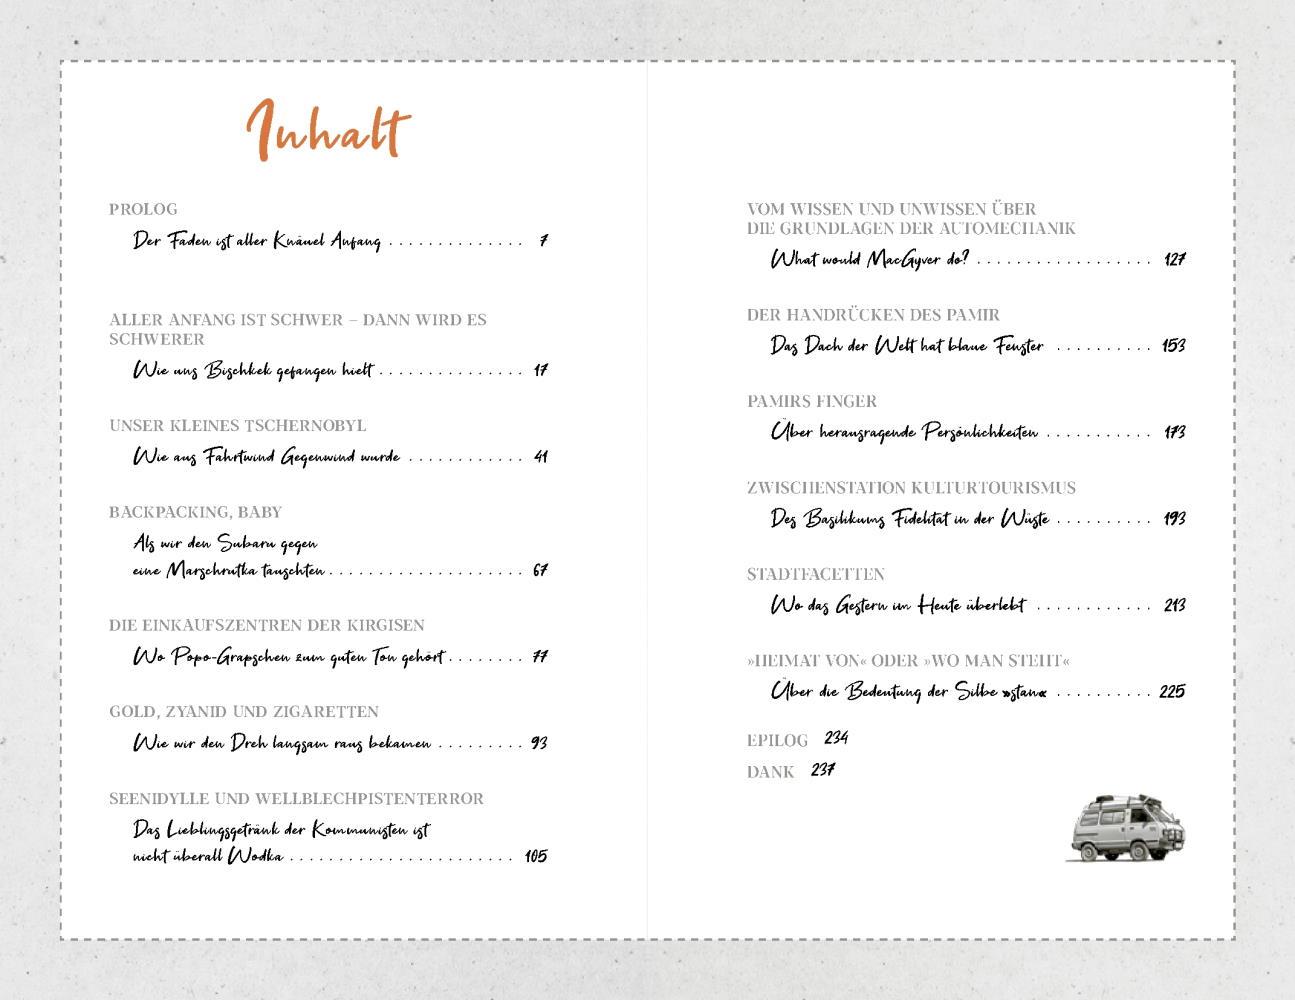 Inhalt
PROLOG
Der Faden ist aller Knäuel Anfang . . . . . . . . . . . . . . 7
ALLER ANFANG IST SCHWER – DANN WIRD ES
SCHWERER
Wie uns Bischkek gefangen hielt . . . . . . . . . . . . . . . 17
UNSER KLEINES TSCHERNOBYL
Wie aus Fahrtwind Gegenwind wurde . . . . . . . . . . . . 41
BACKPACKING, BABY
Als wir den Subaru gegen
eine Marschrutka tauschten . . . . . . . . . . . . . . . . . . . . 67
DIE EINKAUFSZENTREN DER KIRGISEN
Wo Popo-Grapschen zum guten Ton gehört . . . . . . . . 77
GOLD, ZYANID UND ZIGARETTEN
Wie wir den Dreh langsam raus bekamen . . . . . . . . . 93
SEENIDYLLE UND WELLBLECHPISTENTERROR
Das Lieblingsgetränk der Kommunisten ist
nicht überall Wodka . . . . . . . . . . . . . . . . . . . . . . . 105
VOM WISSEN UND UNWISSEN ÜBER
DIE GRUNDLAGEN DER AUTOMECHANIK
What would MacGyver do? . . . . . . . . . . . . . . . . . . 127
DER HANDRÜCKEN DES PAMIR
Das Dach der Welt hat blaue Fenster . . . . . . . . . . 153
PAMIRS FINGER
Über herausragende Persönlichkeiten . . . . . . . . . . . 173
ZWISCHENSTATION KULTURTOURISMUS
Des Basilikums Fidelität in der Wüste . . . . . . . . . . 193
STADTFACETTEN
Wo das Gestern im Heute überlebt . . . . . . . . . . . . 213
»HEIMAT VON« ODER »WO MAN STEHT«
Über die Bedeutung der Silbe »stan« . . . . . . . . . . 225
EPILOG 234
DANK 237